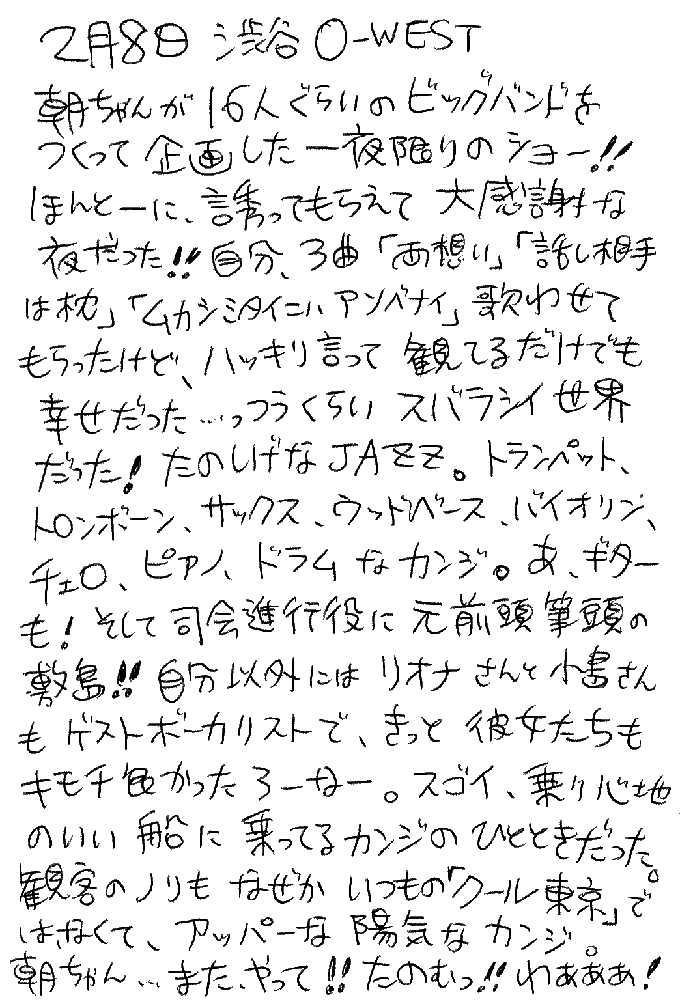 2月8日 渋谷 O-WEST
朝ちゃんが 16人ぐらいの ビッグバンドを
つくって 企画した 一夜限りの ショー!!
ほんとーに、誘ってもらえて 大感謝な
夜だった!! 自分、3曲「両想い」「話し相手
は枕」「ムカシミタイニハ アソベナイ」歌わせて
もらったけど、ハッキリ言って 観てるだけでも
幸せだった…っつうくらい スバラシイ 世界
だった! たのしげな JAZZ。トランペット、
トロンボーン、サックス、ウッドベース、バイオリン、
チェロ、ピアノ、ドラム なカンジ。あ、ギター
も! そして 司会進行役に 元前頭筆頭の
敷島!! 自分以外には リオナ さんと 小島さん
も ゲストボーカリストで、きっと 彼女たちも
キモチ良かったろーなー。スゴイ、乗り心地
のいい 船に 乗ってるカンジの ひとときだった。
観客のノリも なぜか いつもの「クール東京」で
はなくて、アッパーな 陽気な カンジ。
朝ちゃん… また、やって!! たのむっ!! わぁぁぁ!